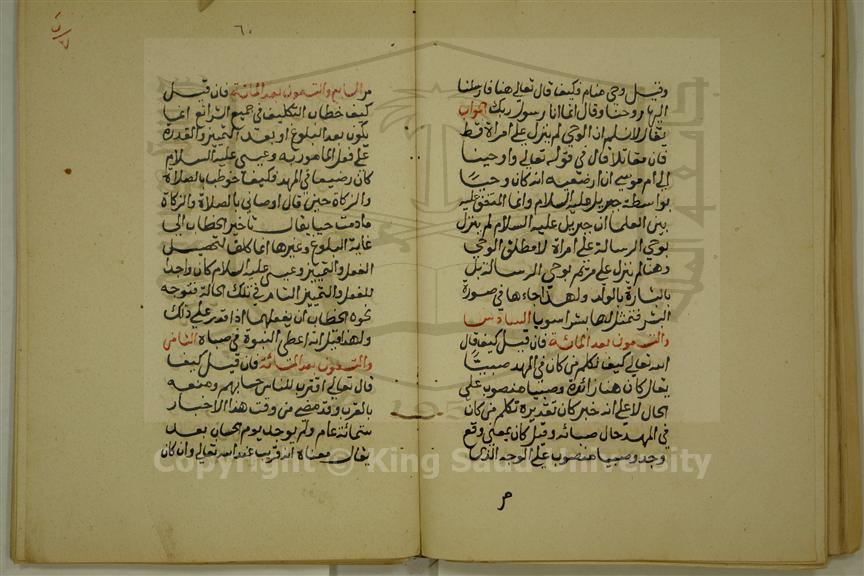 وقيل وحي منام وكيف قال تعالي هنا فارسلنا
اليها روحنا وقال انما انا رسول ربك الجواب
يقال لا نسلم ان الوحي لم ينزل علي امراة قط
فان مقاتلا قال في قوله تعالي واوحينا
الي ام موسي ان ارضعيه انه كان وحيا
بواسطة جبريل عليه السلام وانما المتفق عليه
بين العلما ان جبريل عليه السلام لم ينزل
بوحي الرسالة علي امراة لا مطلق الوحي
وهنا لم ينزل علي مريم بوحي الرسالة بل
بالبشارة بالولد ولهذا جاءها في صورة
البشر فتمثل لها بشرا سويا السادس
والتسعون بعد المائة فان قيل كيف قال
الله تعالي كيف نكلم من كان في المهد صبيا
يقال كان هنا زائدة وصبيا منصوب علي
الحال لا علي انه خبر كان تقديره نكلم من كان
في المهد حال صباه وقيل كان بمعني وقع
ووجد وصبيا منصوب علي الوجه الذي
مر
٦٠
مر السابع والتسعون بعد المائة فان قيل
كيف خطاب التكليف في جميع الشرائع انما
يكون بعد البلوغ او بعد التمييز والقدرة
علي فعل المامور به وعيسي عليه السلام
كان رضيعا في المهد فكيف خوطب بالصلاة
والزكاة حين قال اوصاني بالصلاة والزكاة
ما دمت حيا يقال تاخير الخطاب الي
غاية البلوغ وغيرها انما كان لتحصيل
الفعل والتمييز وعيسي عليه السلام كان واجدا
للفعل والتمييز التام في تلك الحالة فتوجه
نحوه الخطاب ان يفعلها اذا قدر علي ذلك
ولهذا قيل انه اعطي النبوة في صباه الثامن
والتسعون بعد المائة فان قيل كيف
قال تعالي اقترب للناس حسابهم وصفه
بالقرب وقد مضي من وقت هذا الاخبار
ستمائة عام ولم يوجد يوم الحساب بعد
يقال معناه انه قريب عند الله تعالي وان كان
Copyright © King Saud University
1957